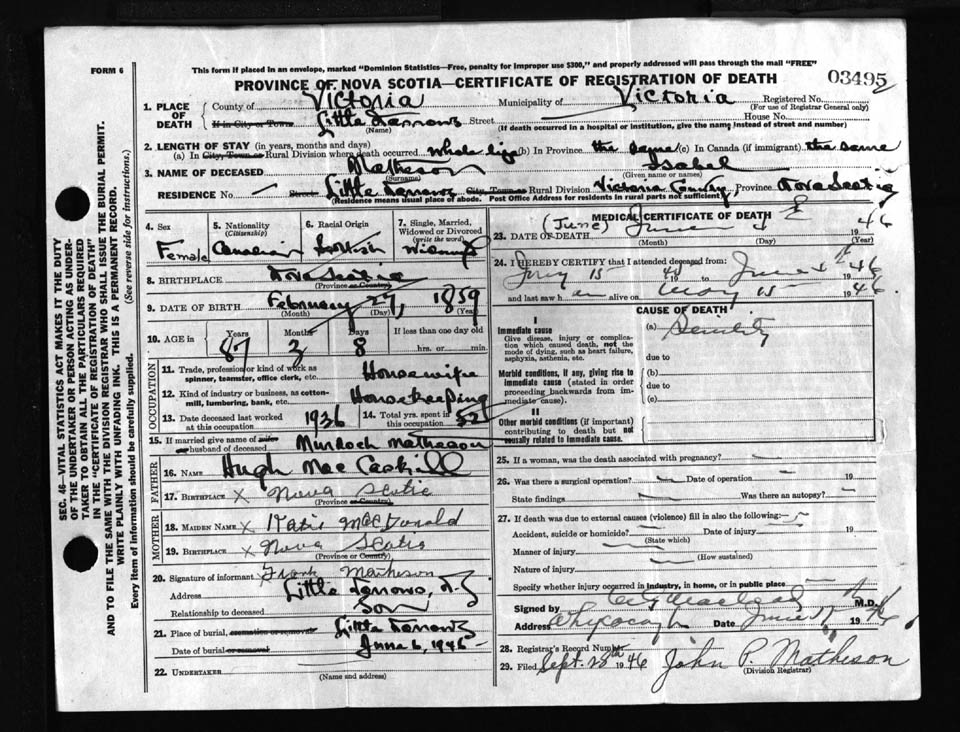 FORM 6
This form if placed in an envelope, marked "Dominion Statistics—Free, penalty for improper use $300," and properly addressed will pass through the mail "FREE"
PROVINCE OF NOVA SCOTIA—CERTIFICATE OF REGISTRATION OF DEATH
03495
SEC. 46—VITAL STATISTICS ACT MAKES IT THE DUTY
OF THE UNDERTAKER OR PERSON ACTING AS UNDER-
TAKER TO OBTAIN ALL THE PARTICULARS REQUIRED
IN THE "CERTIFICATE OF REGISTRATION OF DEATH"
AND TO FILE THE SAME WITH THE DIVISION REGISTRAR WHO SHALL ISSUE THE BURIAL PERMIT.
WRITE PLAINLY WITH UNFADING INK. THIS IS A PERMANENT RECORD.
Every item of information should be carefully supplied. (See reverse side for instructions.)
1. PLACE OF DEATH County of Victoria Municipality of Victoria Registered No.
(For use of Registrar General only)
If in City or Town Little Narrows Street House No.
(Name) (If death occurred in a hospital or institution, give the name instead of street and number)
2. LENGTH OF STAY (in years, months and days)
(a) In City, Town or Rural Division where death occurred whole life (b) In Province the same (c) In Canada (if immigrant) the same
3. NAME OF DECEASED Matheson Isabel
(Surname) (Given name or names)
RESIDENCE No. — Street Little Narrows City, Town or Rural Division Victoria County Province Nova Scotia
(Residence means usual place of abode. Post Office Address for residents in rural parts not sufficient)
4. Sex Female
5. Nationality (Citizenship) Canadian
6. Racial Origin Scottish
7. Single, Married, Widowed or Divorced (write the word) Widowed
8. BIRTHPLACE Nova Scotia
(Province or Country)
9. DATE OF BIRTH February 27, 1859
(Month) (Day) (Year)
10. AGE in Years 87 Months 3 Days 8 If less than one day old hrs. or min.
OCCUPATION
11. Trade, profession or kind of work as spinner, teamster, office clerk, etc. Housewife
12. Kind of industry or business, as cotton-mill, lumbering, bank, etc. Housekeeping
13. Date deceased last worked at this occupation 1936
14. Total yrs. spent in 52
15. If married give name of wife or husband of deceased Murdoch Matheson
FATHER
16. NAME Hugh MacCaskill
17. BIRTHPLACE x Nova Scotia
(Province or Country)
MOTHER
18. MAIDEN NAME x Katie MacDonald
19. BIRTHPLACE x Nova Scotia
(Province or Country)
20. Signature of informant Frank Matheson
Address Little Narrows, N.S
Relationship to deceased Son
21. Place of burial, cremation or removal Little Narrows
Date of burial or removal June 6, 1946
22. UNDERTAKER
(Name and address)
MEDICAL CERTIFICATE OF DEATH
23. DATE OF DEATH (June) June 4 1946
(Month) (Day) (Year)
24. I HEREBY CERTIFY that I attended deceased from:
15 to June 4th 1946
and last saw h er alive on May 15 1946.
CAUSE OF DEATH
I
Immediate cause
Give disease, injury or complication which caused death, not the mode of dying, such as heart failure, asphyxia, asthenia, etc.
(a) Senility
due to
Morbid conditions, if any, giving rise to immediate cause (stated in order proceeding backwards from immediate cause).
(b)
due to
(c)
II
Other morbid conditions (if important) contributing to death but not causally related to immediate cause.
25. If a woman, was the death associated with pregnancy? —
26. Was there a surgical operation? — Date of operation — 19
State findings — Was there an autopsy? —
27. If death was due to external causes (violence) fill in also the following:—
Accident, suicide or homicide? Date of injury 19
(State which)
Manner of injury
(How sustained)
Nature of injury
Specify whether injury occurred in industry, in home, or in public place
Signed by MacLeod M.D.
Address Whycocomagh Date June 17th 1946
28. Registrar's Record Number
29. Filed Sept. 23th 1946 John P. Matheson
(Division Registrar)